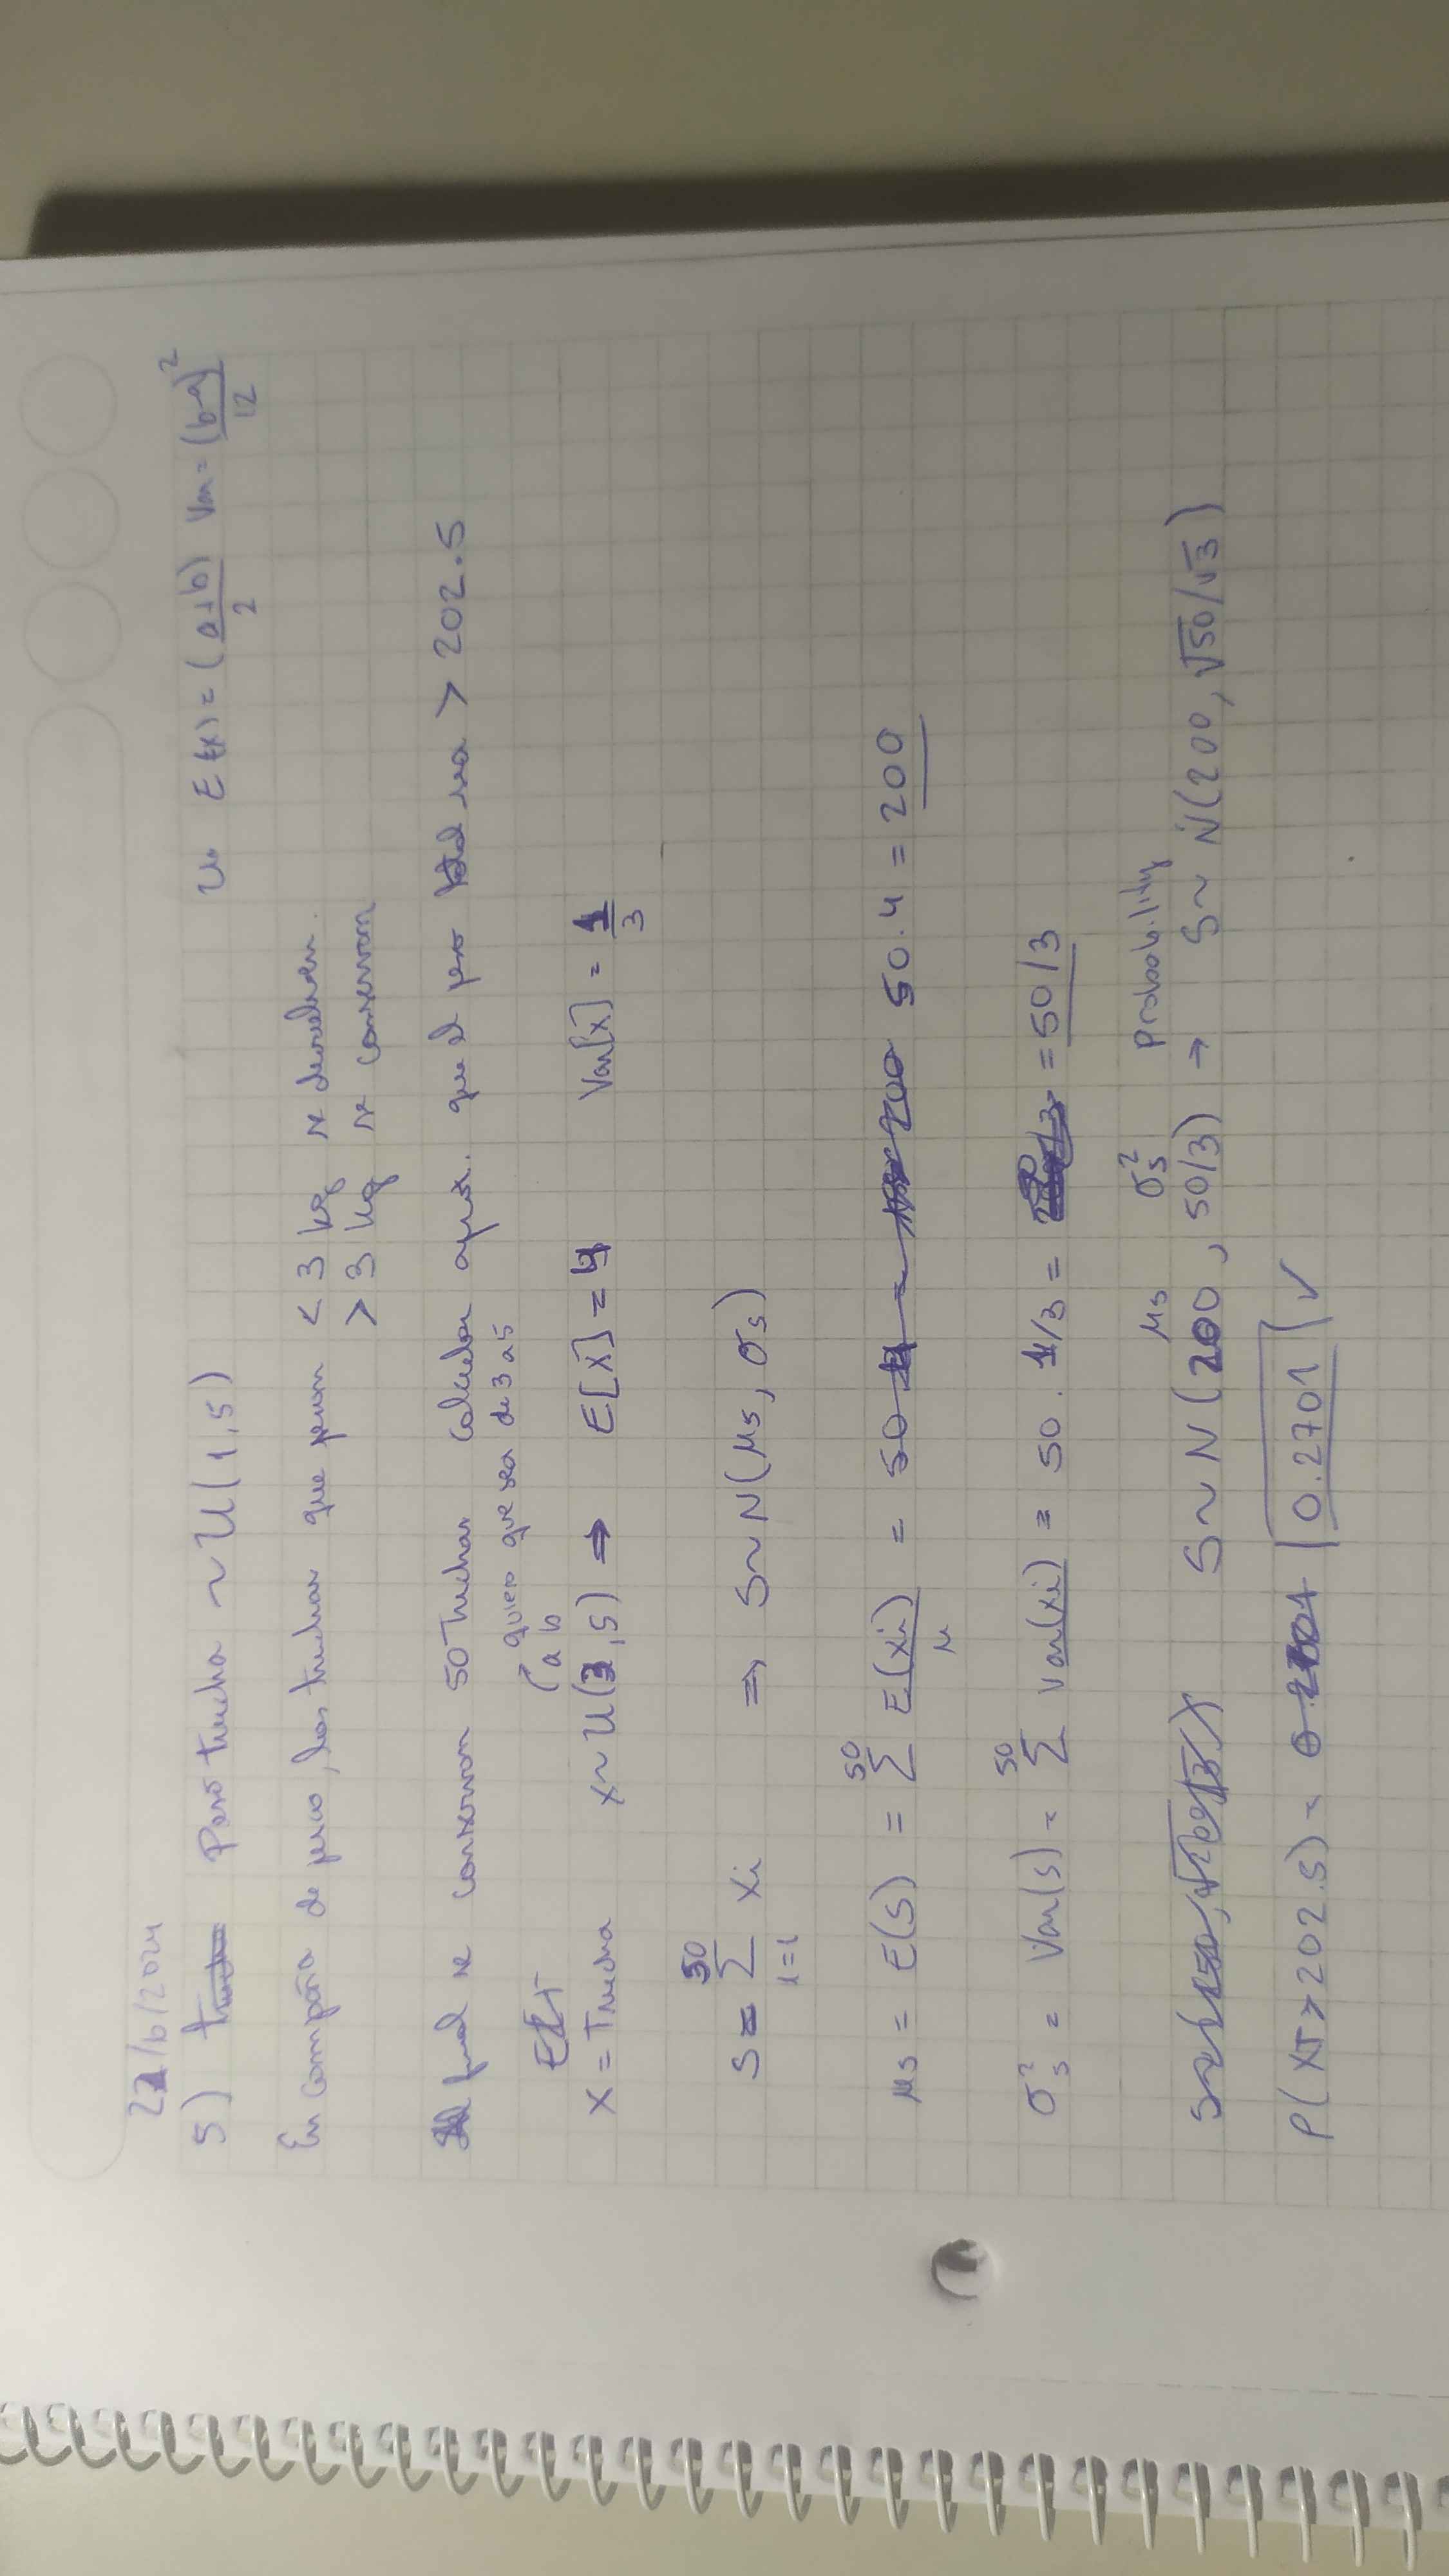 21/6/2024
5) Peso trucha ~ U(1,5)
U. E(X) = (a+b)/2 Var = (b-a)²/12
En compañia de pesca, las truchas que pesan < 3 kg se devuelven.
> 3 kg se conservan
Al final se conservan 50 Truchas calcular aprox. que el peso total sea > 202.5
quiero que sea de 3 a 5
a b
X = Trucha x ~ U(3,5) ⇒ E[X] = 4 Var[X] = 1/3
S = ∑_{i=1}^{50} Xi ⇒ S ~ N(μs, σs)
μs = E(S) = ∑^{50} E(Xi) = 50.4 = 200
μ
σs² = Var(s) = ∑^{50} Var(Xi) = 50 . 1/3 = = 50/3
μs σs² Probability
S ~ N(200, 50/3) → S ~ N(200, √50/√3)
P(XT > 202.5) = 0.2701 ✓